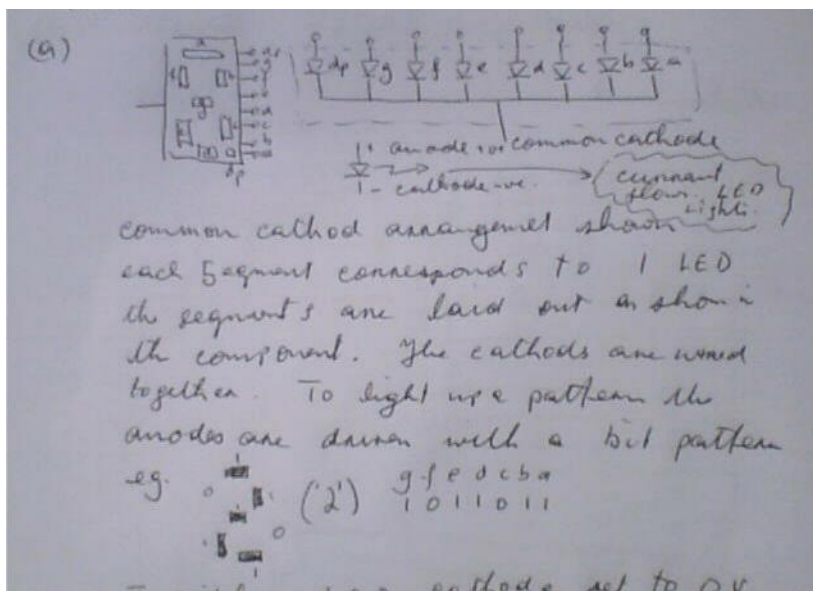 (a)
a
g
dp
dp g f e d c b a
+ anode +ve common cathode
- cathode -ve.
current
flows. LED
lights.
common cathod arrangemet shown
each segment corresponds to 1 LED
the segment's are laid out as show in
the component. The cathods are wired
together. To light up a pattern the
anodes are driven with a bit pattern
eg. ('2') g f e d c b a
1 0 1 1 0 1 1
cathode set to 0V